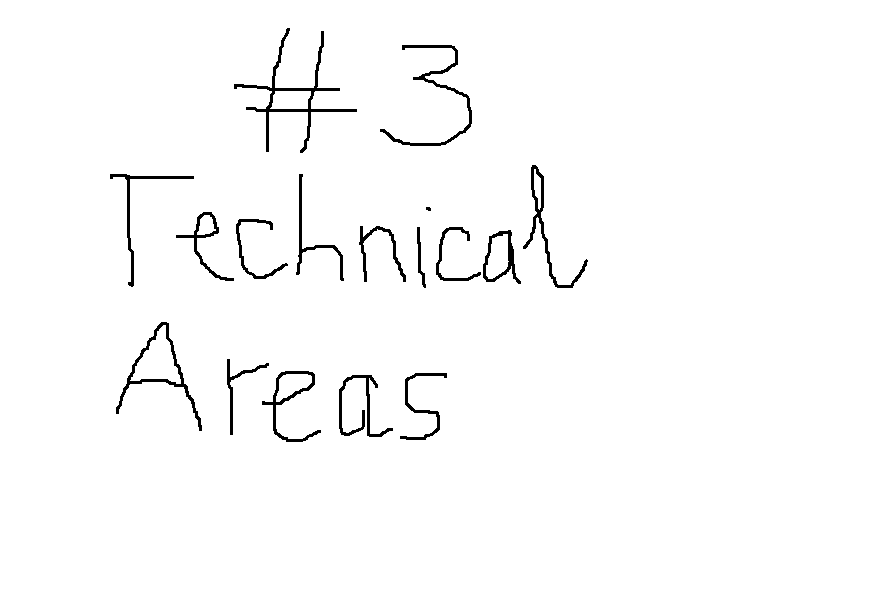 #3
Technical
Areas